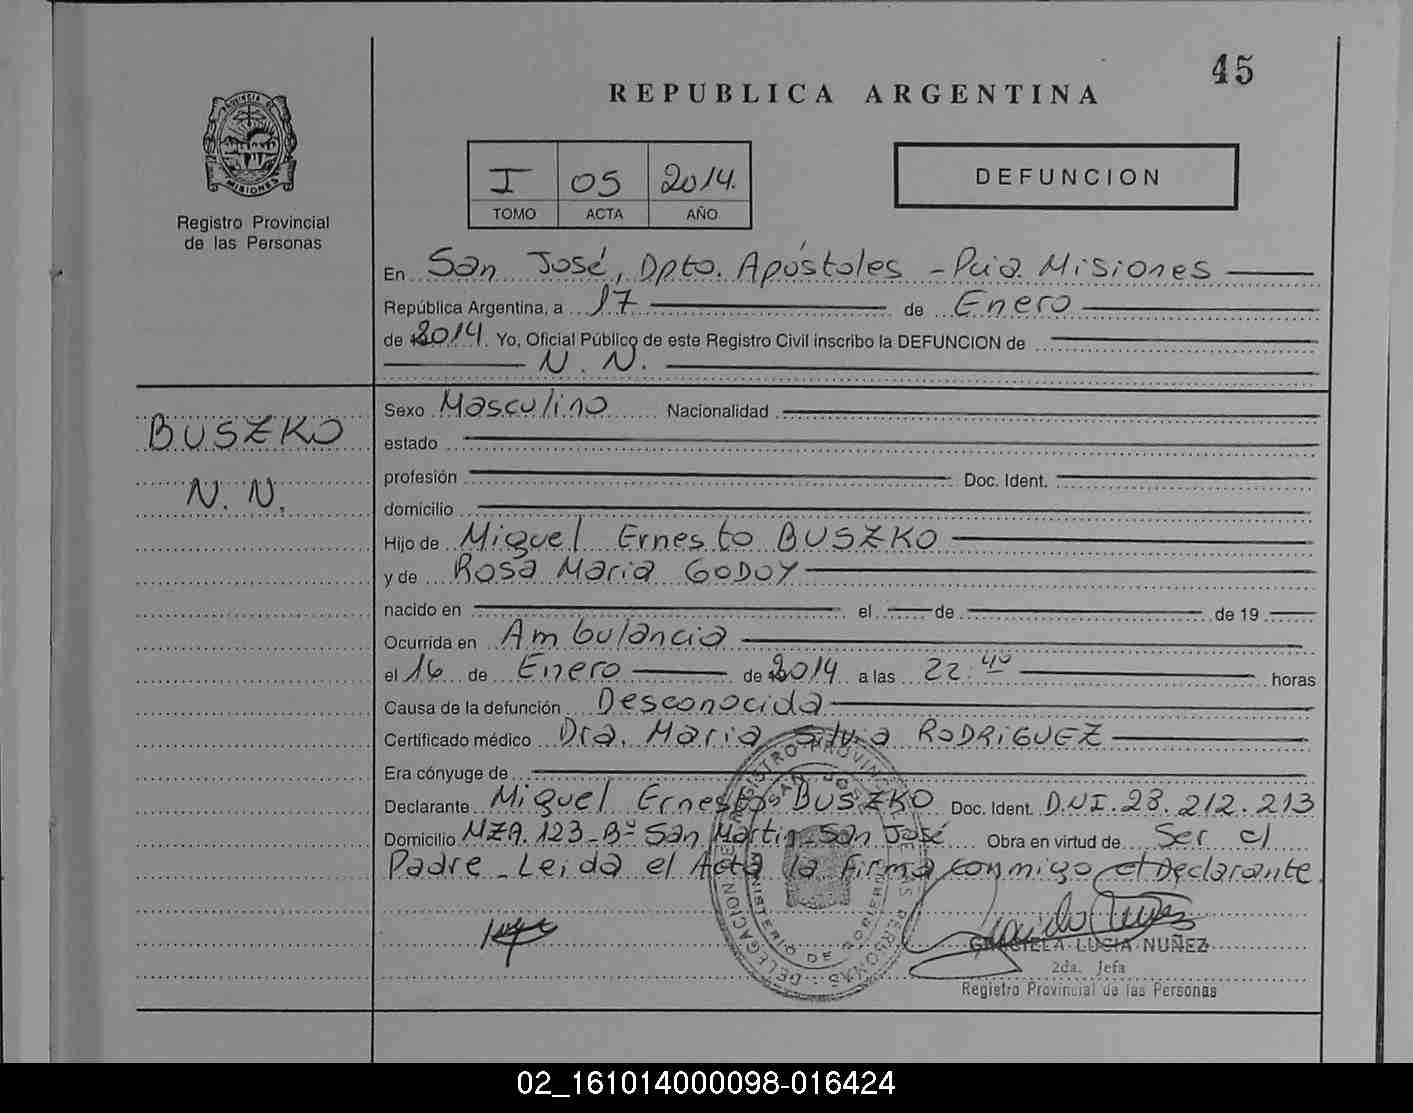 45
REPUBLICA ARGENTINA
PROVINCIA DE
MISIONES
Registro Provincial
de las Personas
I 05 2014.
TOMO ACTA AÑO
DEFUNCION
En San José, Dpto. Apóstoles - Pcia Misiones
República Argentina, a 17 de Enero
de 2014. Yo, Oficial Público de este Registro Civil inscribo la DEFUNCION de
N. N.
BUSZKO
N. N.
Sexo Masculino Nacionalidad
estado
profesión Doc. Ident.
domicilio
Hijo de Miguel Ernesto BUSZKO
y de Rosa Maria GODOY
nacido en el de de 19
Ocurrida en Ambulancia
el 16 de Enero de 2014 a las 22:40 horas
Causa de la defunción Desconocida
Certificado médico Dra. Maria Silvia RODRIGUEZ
Era cónyuge de
Declarante Miguel Ernesto BUSZKO Doc. Ident. D.N.I. 28.212.213
Domicilio MZA. 123 - Bº San Martin - San José Obra en virtud de Ser el
Padre - Leida el Acta la firma conmigo el Declarante.
REGISTRO PROVINCIAL DE LAS PERSONAS - DELEGACION
SAN JOSE
MINISTERIO DE GOBIERNO
GRACIELA LUCIA NUÑEZ
2da. Jefa
Registro Provincial de las Personas
02_161014000098-016424